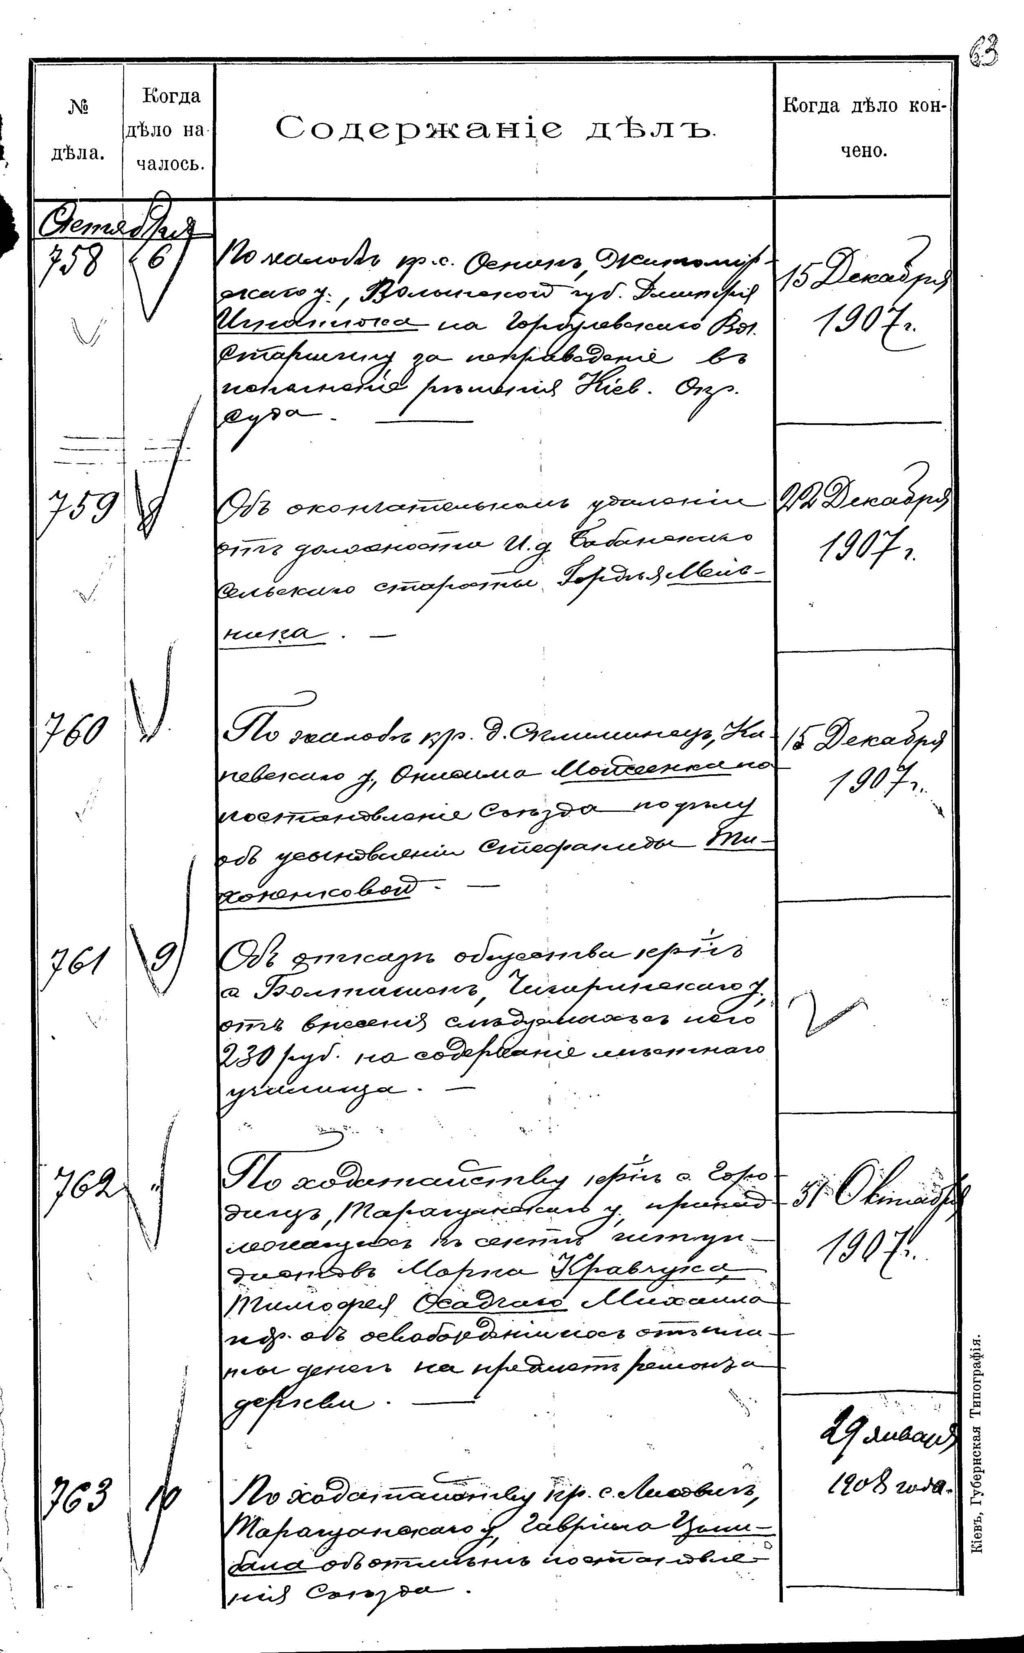 63
№ дѣла.
Когда дѣло на-
чалось.
Содержаніе дѣлъ.
Когда дѣло кон-
чено.
Октября
758
6
По жалобѣ кр. с. Осникъ, Житомір-
скаго у., Волынской губ. Дмитрія
Игнатюка на Горбулевскаго Вол.
Старшину за неприведеніе въ
исполненіе рѣшенія Кіев. Окр.
Суда. —
15 Декабря
1907 г.
759
Объ окончательномъ удаленіи
отъ должности И. д. Бабанскаго
сельскаго старосты Гордѣя Мель-
ника. —
22 Декабря
1907 г.
760
"
По жалобѣ кр. д. Ка-
невскаго у., Онисима Мойсеенка на
постановленіе Съѣзда по дѣлу
объ усыновленіи Стефаниды Ти-
хоненковой. —
15 Декабря
1907 г.
761
9
Объ отказѣ общества кр҃нъ
с. Болтышекъ, Чигиринскаго у.,
отъ внесенія слѣдуемыхъ съ него
230 руб. на содержаніе мѣстнаго
училища. —
762
"
По ходатайству кр҃нъ с. Горо-
дищъ, Таращанскаго у., принад-
лежащихъ къ сектѣ штун-
дистовъ Марка Кравчука,
Тимофея Осадчаго Михаила
и др. объ освобожденіи ихъ отъ упла-
ты денегъ на предметъ ремонта
церкви. —
31 Октября
1907 г.
763
10
По ходатайству кр. с.
Таращанскаго у. Гавріила Цым-
бала объ отмѣнѣ постановле-
нія Съѣзда.
29 января
1908 года.
Кіевъ, Губернская Типографія.